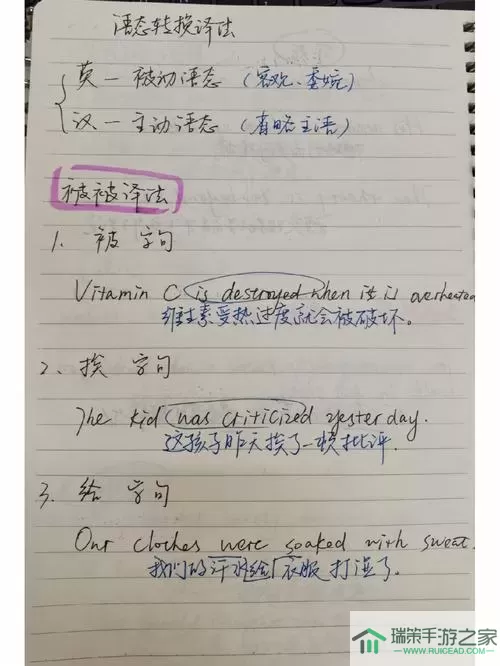 语态转换译法
英一被动语态（客观、委婉）
汉一主动语态（省略主语）
被被译法
1、被字句
Vitamin C is destroyed when it is overheated
维生素受热过度就会被破坏。
2、挨字句
The kid was criticized yesterday.
这孩子昨天挨了一顿批评.
3、给字句
Our clothes were soaked with sweat.
我们的汗水给衣服打湿了。
瑞策手游之家
WWW.RUICEAD.COM